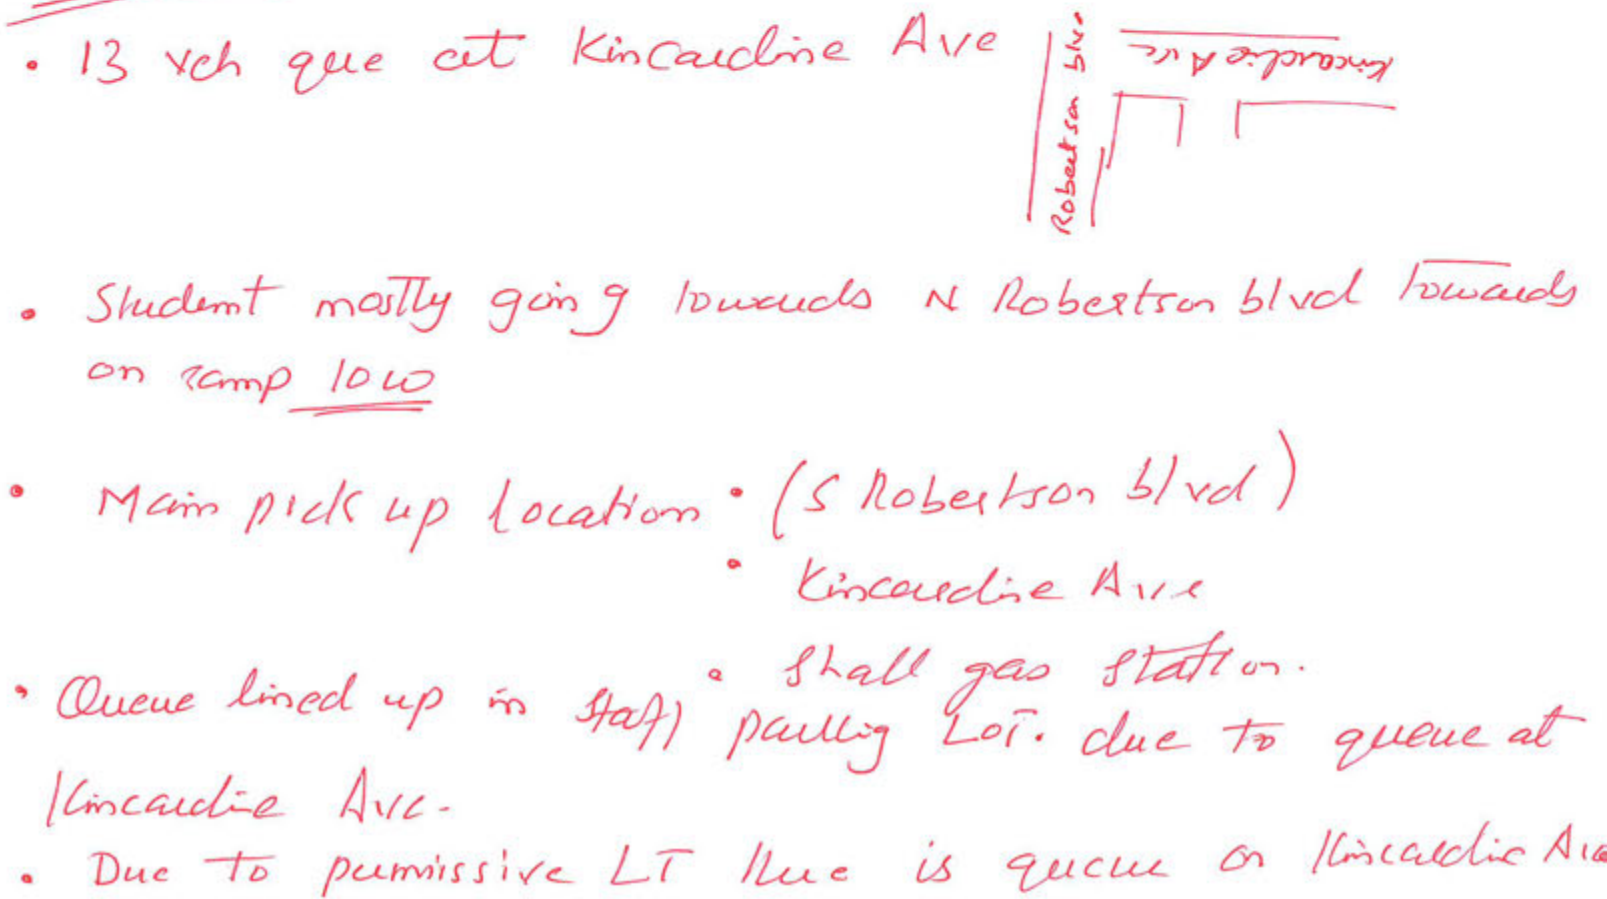 • 13 veh que at Kincardine Ave
Robertson blvd
Kincardine Ave
• Student mostly going towards N Robertson blvd towards
on ramp 10W
• Main pick up location • (S Robertson blvd)
• Kincardine Ave
• Shall gas station.
• Queue lined up in staff parking LOT. due to queue at
Kincardine Ave.
• Due to permissive LT there is queue on Kincardine Ave